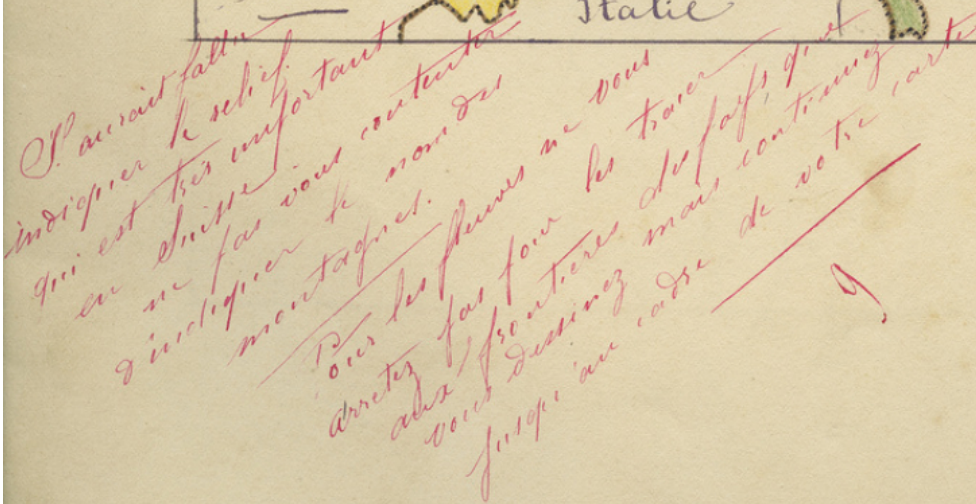 Italie
Il aurait fallu
indiquer le relief
qui est très important
en Suisse
ne pas vous contenter
d'indiquer le nom des
montagnes.
Pour les fleuves ne vous
arretez pas pour les tracer
aux frontières des pays, que
vous dessinez mais continuez
jusqu'au cadre de votre carte